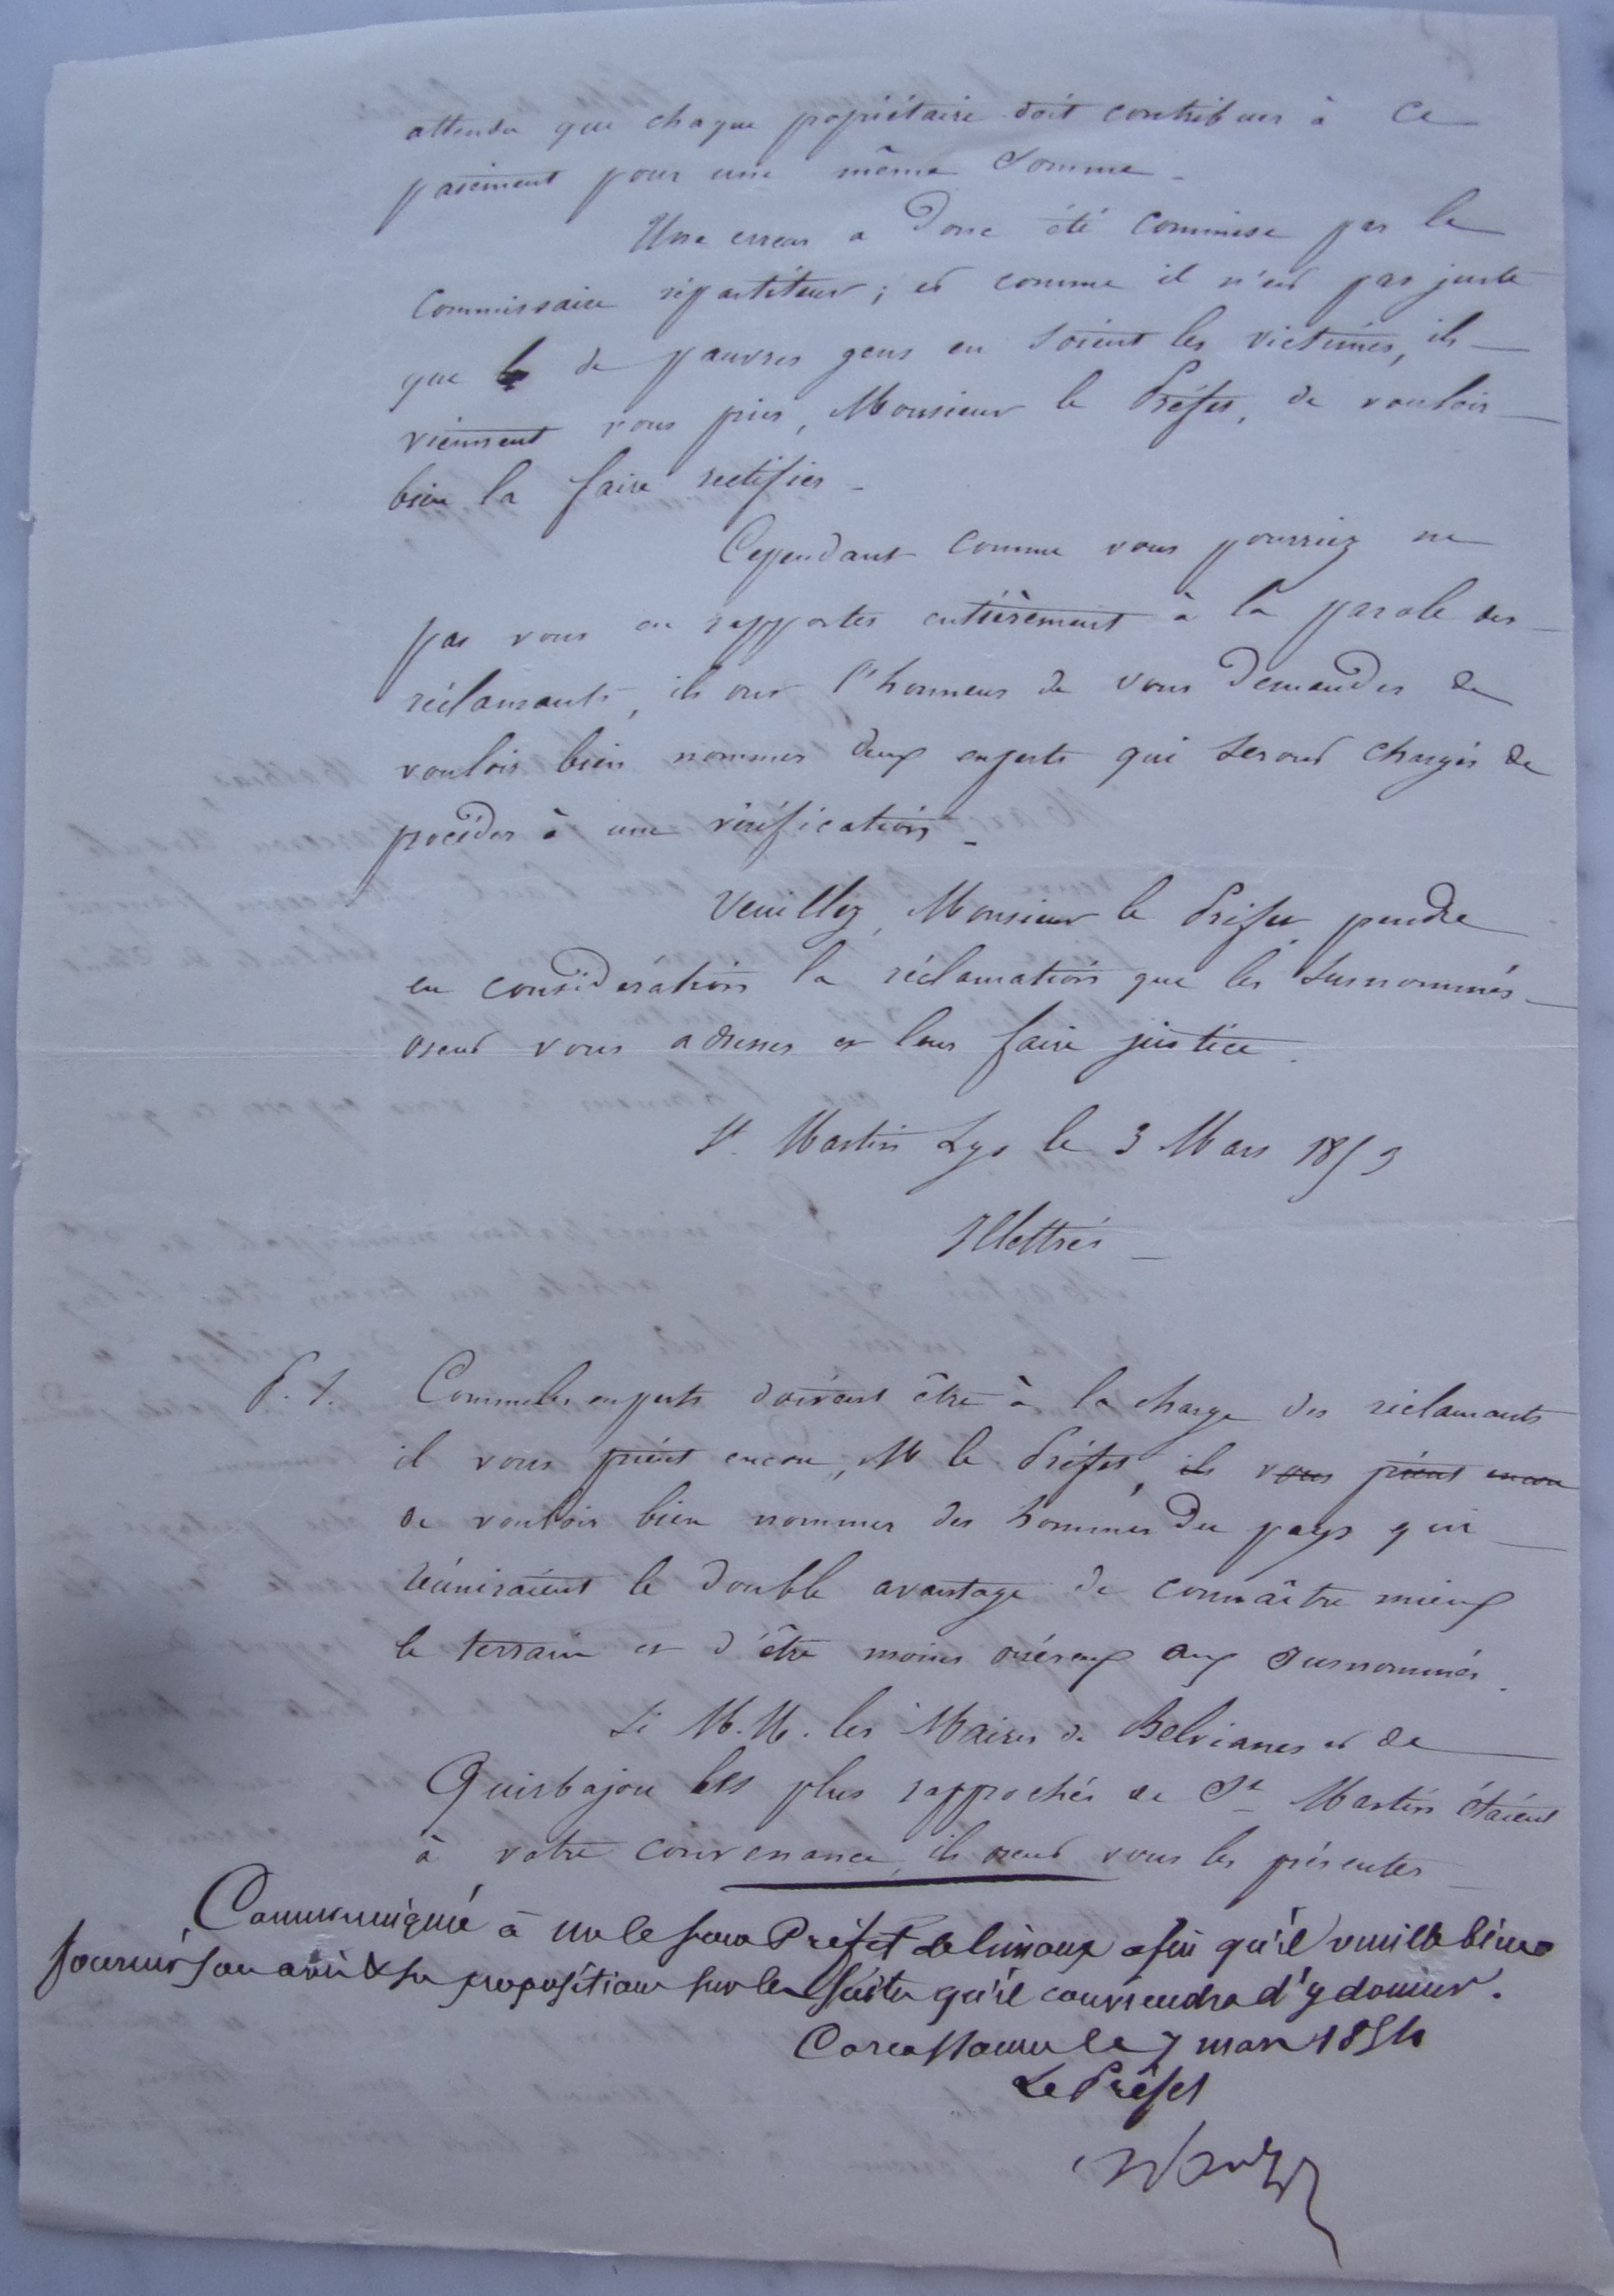 attendu que chaque propriétaire doit contribuer à ce
paiement pour une même somme.
Une erreur a donc été commise par le
commissaire répartiteur ; et comme il n'est pas juste
que de pauvres gens en soient les victimes, ils
viennent vous prier, Monsieur le Préfet, de vouloir
bien la faire rectifier.
Cependant comme vous pourriez ne
pas vous en rapporter entièrement à la parole des
réclamants, ils ont l'honneur de vous demander de
vouloir bien nommer deux experts qui seront chargés de
procéder à une vérification.
Veuillez, Monsieur le Préfet, prendre
en considération la réclamation que les susnommés
osent vous adresser et leur faire justice.
St. Martin Lys le 3 Mars 1853
Illettrés
P. S. Comme les experts doivent être à la charge des réclamants
il vous prient encore, M le Préfet, ils vous prient encore
de vouloir bien nommer des hommes du pays qui
réuniraient le double avantage de connaître mieux
le terrain et d'être moins onéreux aux susnommés.
Si M.M. les Maires de Belvianes et de
Quirbajou les plus rapprochés de St Martin étaient
à votre convenance, ils osent vous les présenter
Communiqué à Mr le sous Préfet de Limoux afin qu'il veuille bien
fournir son avis & sa proposition sur la suite qu'il conviendra d'y donner.
Carcassonne le 7 mars 1854
Le Préfet